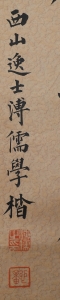 西山逸士溥儒學楷